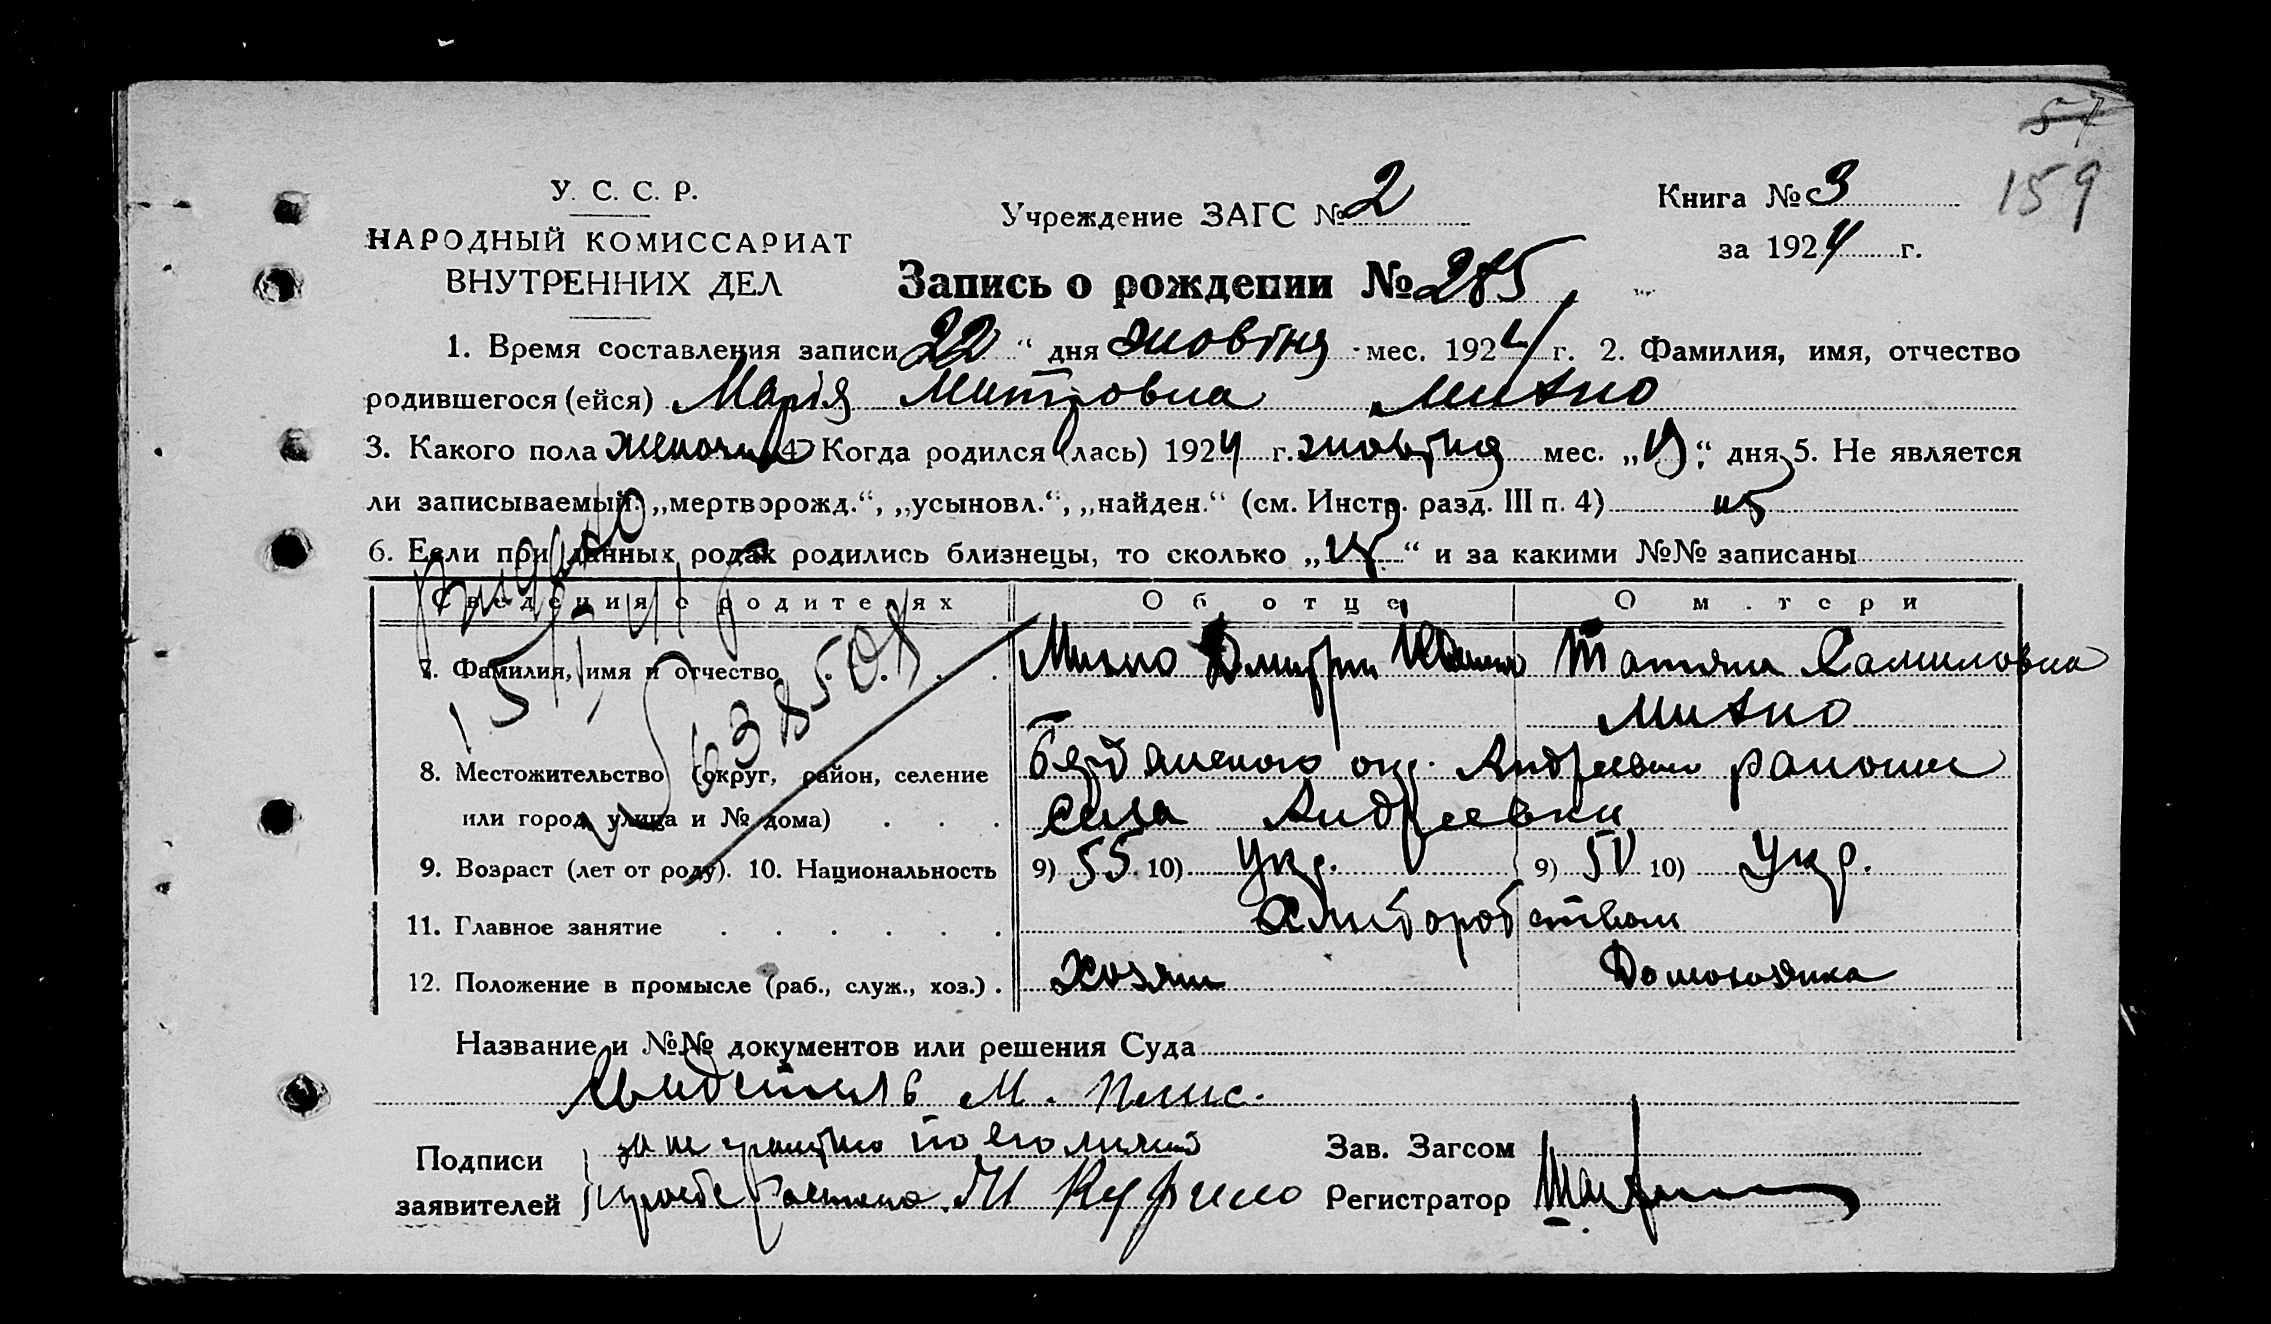 57
159
У. С. С. Р.
НАРОДНЫЙ КОМИССАРИАТ
ВНУТРЕННИХ ДЕЛ
Учреждение ЗАГС № 2
Книга № 3
за 1924 г.
Запись о рождении № 285
1. Время составления записи 22 “ дня жовтня мес. 1924 г. 2. Фамилия, имя, отчество
родившегося (ейся) Марія Митровна Михно
3. Какого пола 4 Когда родился (лась) 1924 г. жовтня мес. „ “ дня 5. Не является
ли записываемый: „мертворожд.“, „усыновл.“, „найден.“ (см. Инстр. разд. III п. 4) ні
6. Если при данных родах родились близнецы, то сколько „ “ и за какими №№ записаны
Сведения о родителях Об отце О матери
7. Фамилия, имя и отчество Михно Дмитрий Татяна Самиловна
Михно
8. Местожительство (округ, район, селение Бердянского окр. Андреевки району
или город, улица и № дома) села Андреевки
9. Возраст (лет от роду). 10. Национальность 9) 55 10) Укр. 9) 10) Укр.
11. Главное занятие Хлиборобством
12. Положение в промысле (раб., служ., хоз.) хозяин Домохозяйка
Название и №№ документов или решения Суда
Свидетиль М.
Подписи за неграмотно по его личной Зав. Загсом
заявителей просьбе М Регистратор